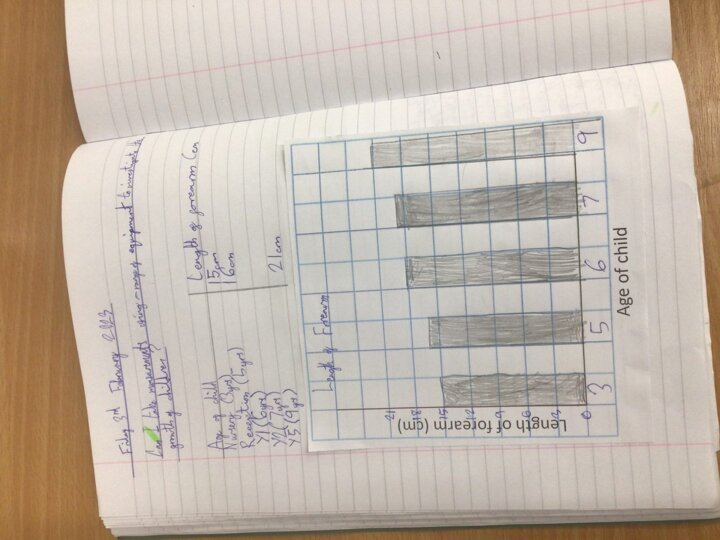 Friday 3rd February 2023
Can I take measurements using a range of equipment to investigate the
growth of children?
Age of child Length of forearm (cm
Nursery (3yrs) 15cm
Reception (5yrs) 16cm
Y1 (6yrs)
Y2 (7yrs)
Y5 (9yrs) 21cm
Length of Forearm
Length of forearm (cm)
21
18
15
12
9
6
3
0
3 5 6 7 9
Age of child